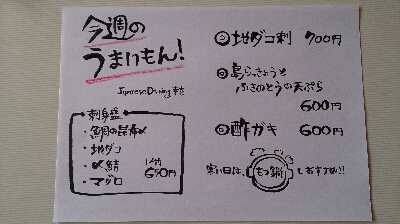 今週の
うまいもん!
Japanese Dining
刺身盛
・鯛の昆布〆
・地ダコ
・〆鯖
・マグロ
1人前
690円
地ダコ刺 700円
島らっきょうと
ふきのとうの天ぷら
600円
酢ガキ 600円
寒い日は、もつ鍋もおすすめ!!